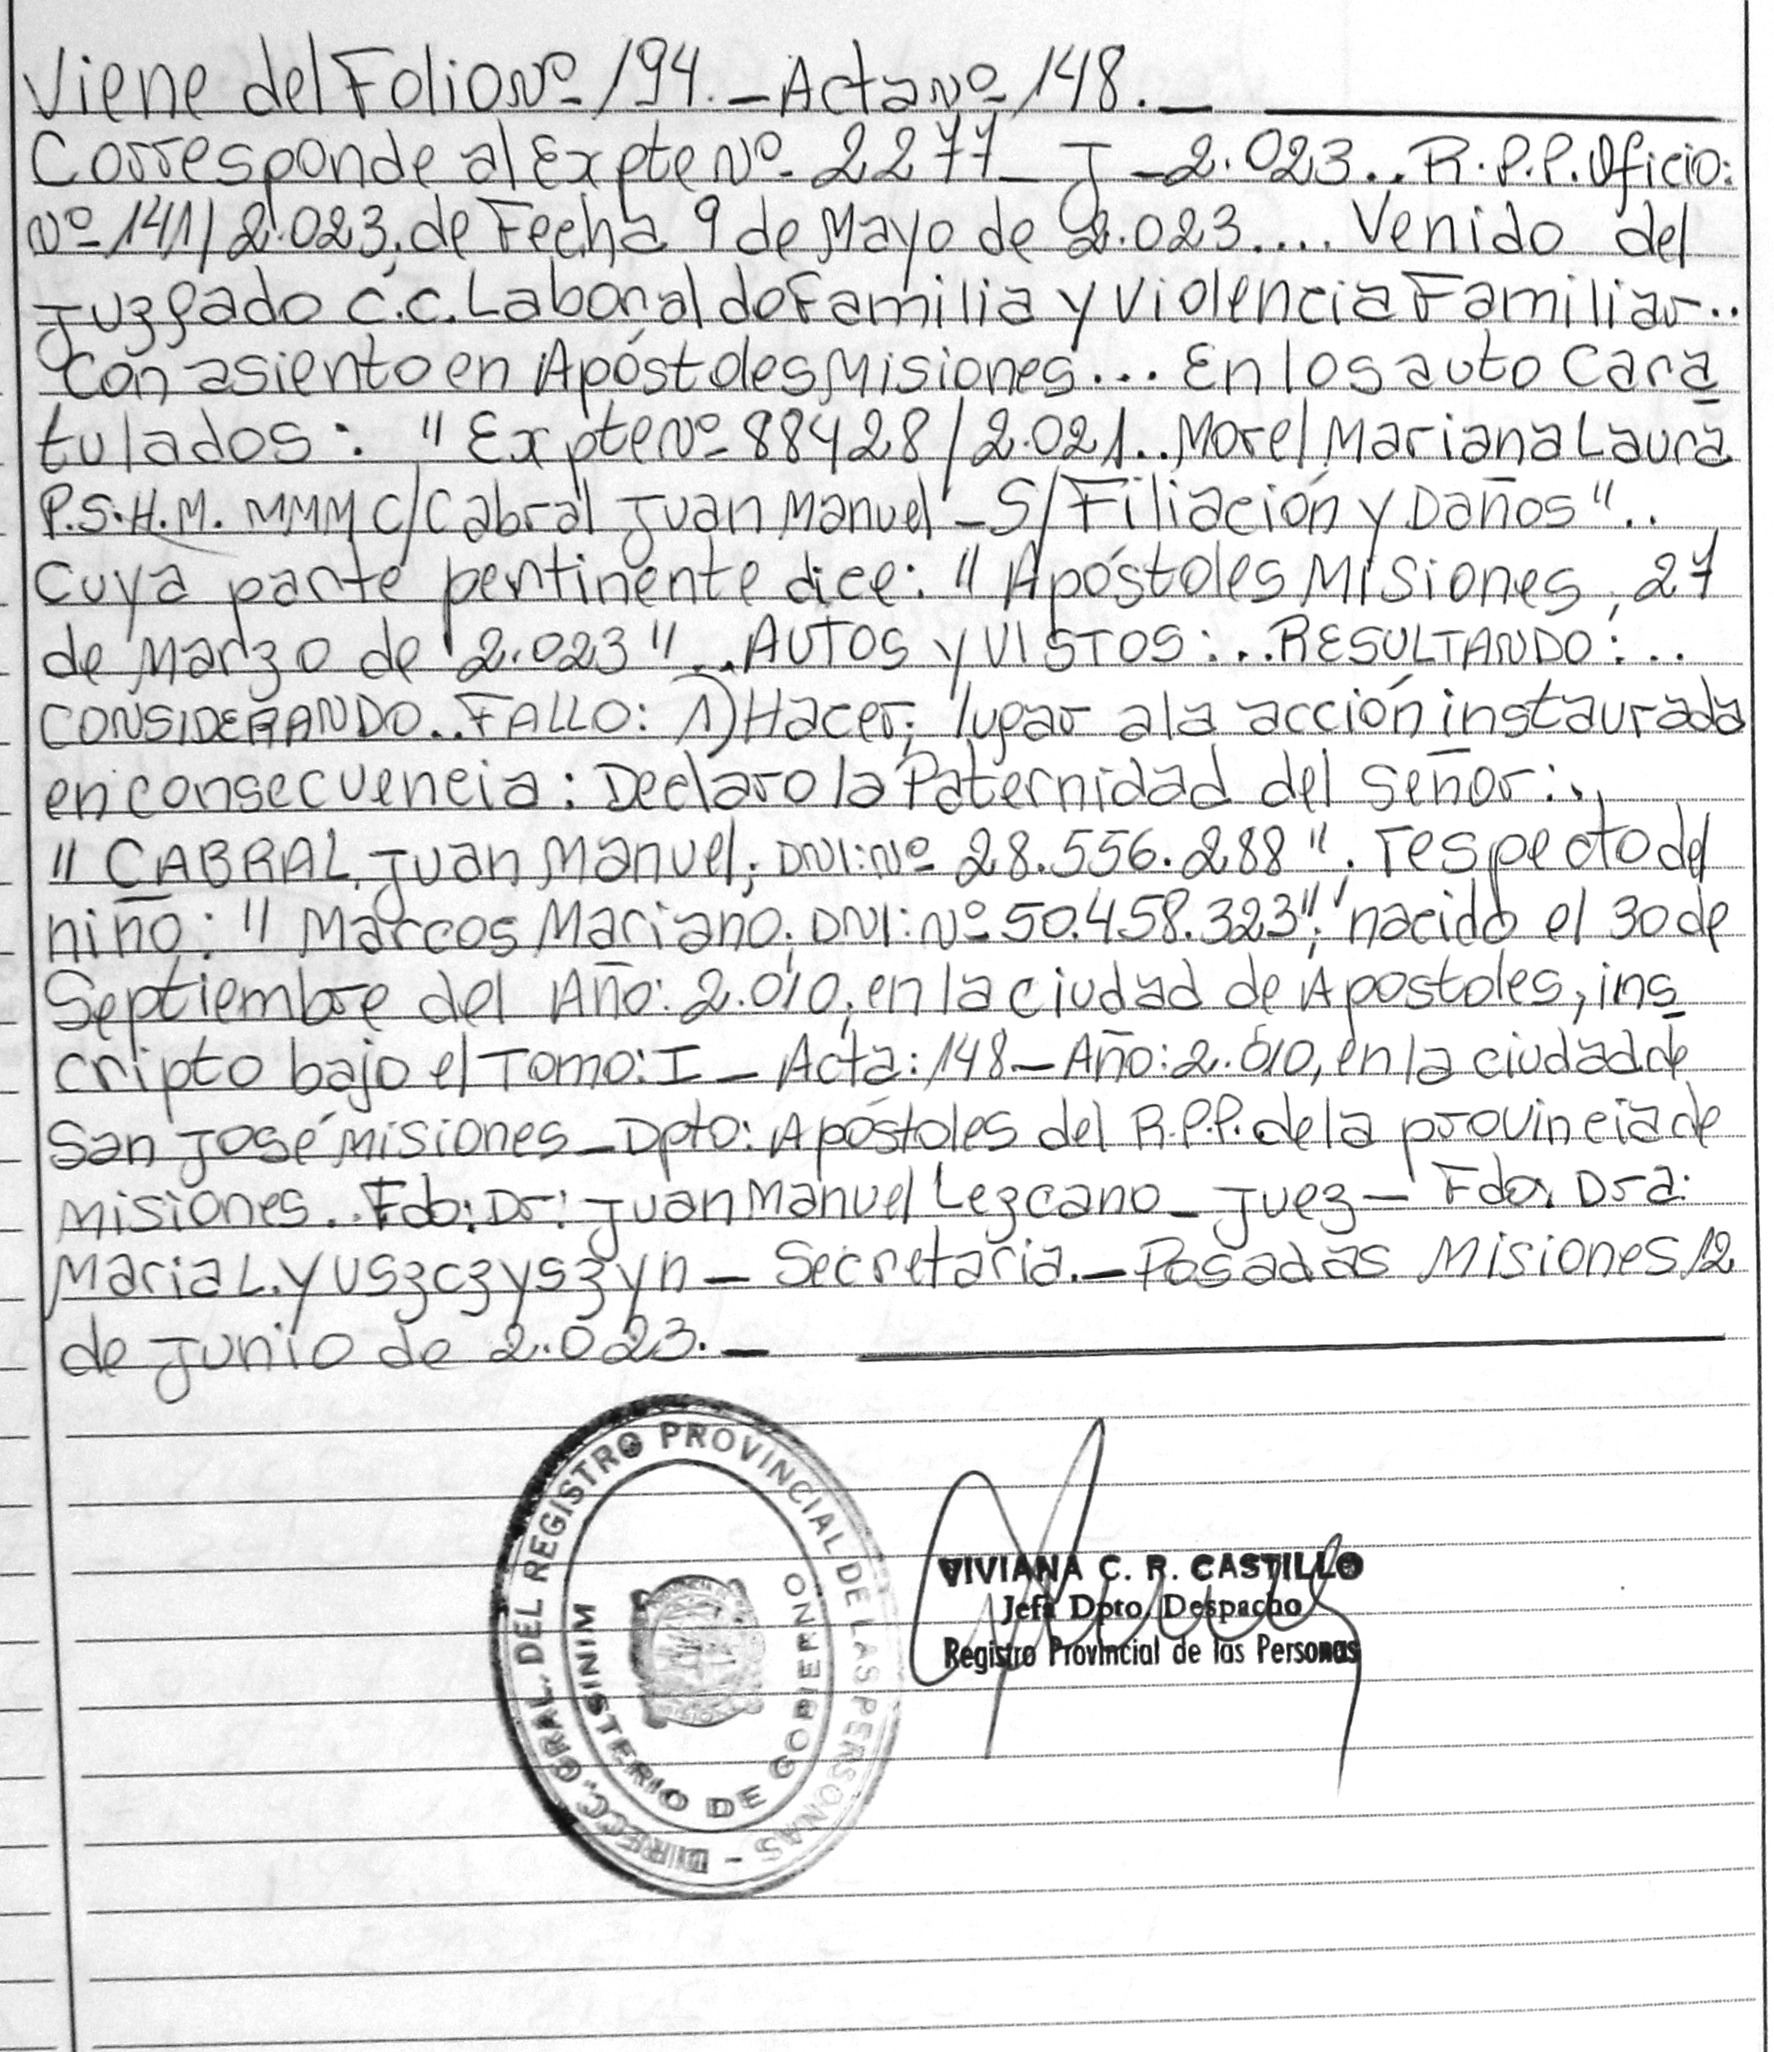 Viene del Folio Nº 194.- Acta Nº 148.-
Corresponde al Expte Nº 2277 - J - 2.023.. R.P.P. Oficio:
Nº 141/2.023, de Fecha 9 de Mayo de 2.023.... Venido del
Juzgado C.C. Laboral de Familia y Violencia Familiar..
Con asiento en Apóstoles Misiones... En los auto Cara
tulados: "Expte Nº 88428/2.021.. Morel Mariana Laura
P.S.H.M. MMM C/Cabral Juan Manuel - S/Filiación y Daños"..
Cuya parte pertinente dice: "Apóstoles Misiones, 27
de Marzo de 2.023"... AUTOS y VISTOS:.. RESULTANDO:..
CONSIDERANDO.. FALLO: 1) Hacer; lugar a la acción instaurada
en consecuencia: Declaro la Paternidad del Señor:.
"CABRAL, Juan Manuel; DNI: Nº 28.556.288". respecto del
niño: "Marcos Mariano; DNI: Nº 50.458.323"; nacido el 30 de
Septiembre del Año: 2.010, en la ciudad de Apostoles, ins
cripto bajo el Tomo: I - Acta: 148 - Año: 2.010, en la ciudad de
San José Misiones - Dpto: Apóstoles del R.P.P. de la provincia de
Misiones.. Fdo: Dr: Juan Manuel Lezcano - Juez - Fdo. Dra:
Maria L. Yuszczyszyn - Secretaria.- Posadas Misiones 12
de Junio de 2.023.-
DIRECC. GRAL. DEL REGISTRO PROVINCIAL DE LAS PERSONAS -
MINISTERIO DE GOBIERNO
VIVIANA C. R. CASTILLO
Jefa Dpto. Despacho
Registro Provincial de las Personas